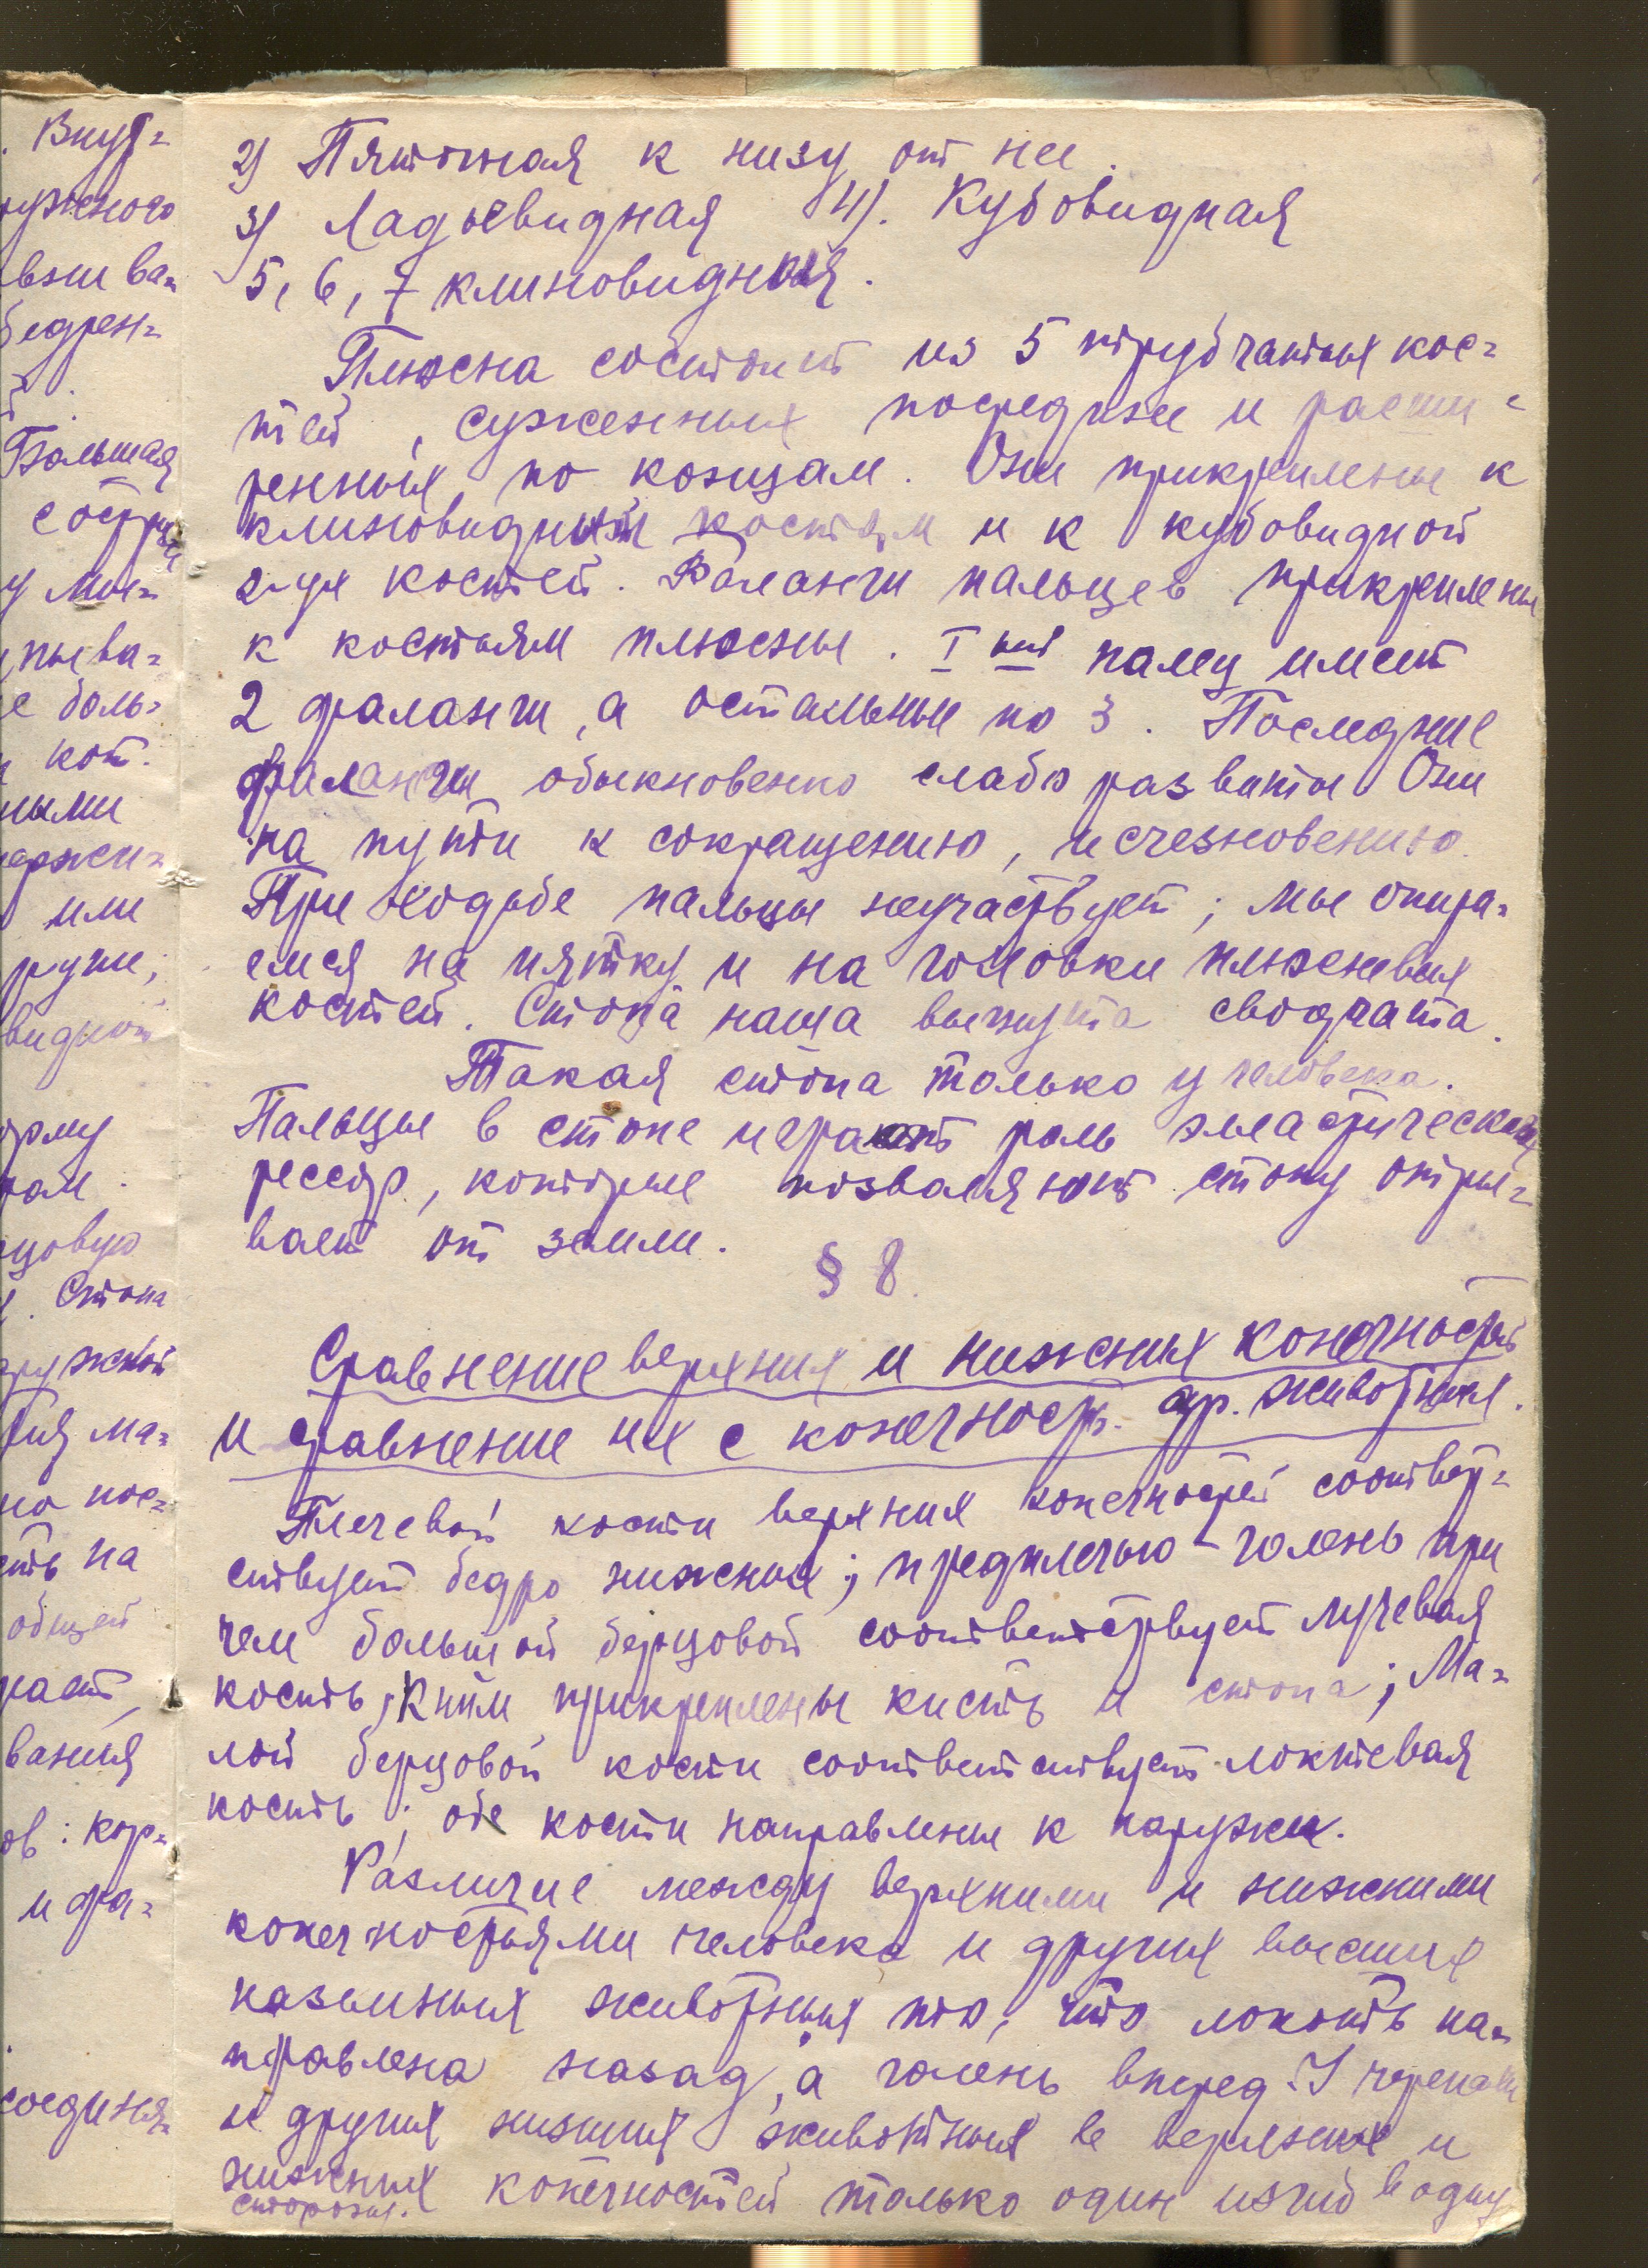 2) Пяточная к низу от нее.
3) Ладьевидная 4). Кубовидная
5, 6, 7 клиновидная.
Плюсна состоит из 5 трубчатых кос=
тей, суженных посредине и расши=
ренных по концам. Они прикреплены к
клиновидным костям и к кубовидной
2-ух костей. Фаланги пальцев прикреплены
к костьям плюсны. I ый палец имеет
2 фаланги, а остальные по 3. Последние
фаланги обыкновенно слабо развиты Они
на пути к сокращению, исчезновению.
При ходьбе пальцы неучаствует; мы опира=
емся на пятку и на головки плюсневых
костей. Стопа наша выгнута сводчата.
Такая стопа только у человека.
Пальцы в стопе играют роль эластических
рессор, которые позваляют стопу отры=
вает от земли.
§ 8.
Сравнение верхних и нижних конечностей
и сравнение их с конечност. др. животных.
Плечевой кости верхних конечностей соответ=
ствует бедро нижних; предплечью - голень при
чем большой берцовой соответствует лучевая
кость, к ним прикреплены кисть и стопа; Ма=
лой берцовой кости соответствует локтевая
кость; обе кости направлены к наружи.
Различие между верхними и нижними
конечностьями человека и других высших
наземных животных то, что локоть на=
правлена назад, а голень вперед. У черепах
и других низших животных в верхних и
нижних конечностей только один изгиб в одну
сторону.
Внут=
ружного
бедрен=
Большая
е боль=
кот.
ными
или
ружи;
Стопа
на
общей
вания
ов: кор=
и фа=
соединя=